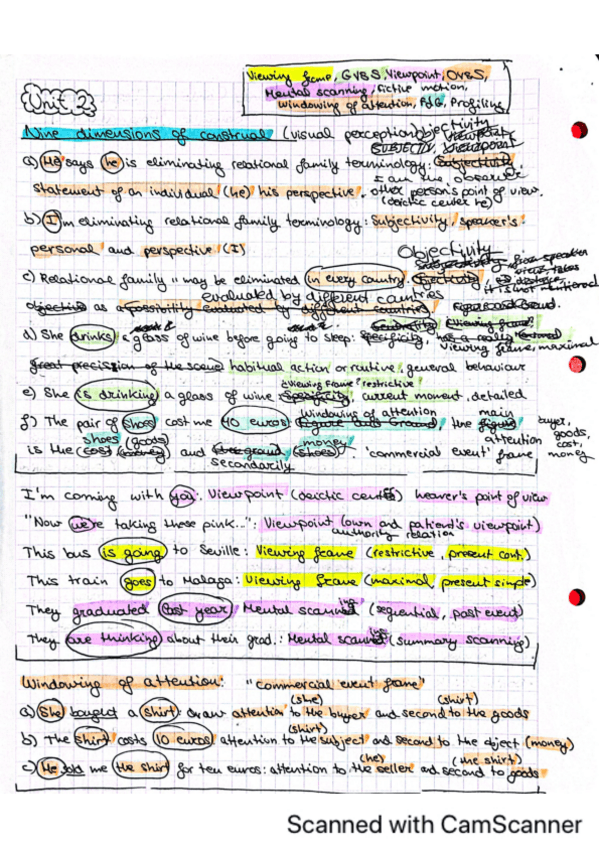 Viewing frame, GVBS, Viewpoint, OVBS,
Mental scanning, fictive motion,
windowing of attention, F&G, Profiling
Unit 2
Nine dimensions of construal (visual perception) Objectivity
a) He says he is eliminating relational family terminology:
I am the observer
statement of an individual (he) his perspective. other person's point of view.
(deictic center he)
b) I'm eliminating relational family terminology: Subjectivity, speaker's
personal and perspective (I)
Objectivity
c) Relational family " may be eliminated in every country.
it is not mentioned
evaluated by different countries
d) She drinks a glass of wine before going to sleep:
viewing frame, maximal
habitual action or routine, general behaviour
Viewing Frame "restrictive"
e) She is drinking a glass of wine current moment, detailed
windowing of attention main
f) The pair of shoes cost me 40 euros the
attention
buyer, goods, cost, money
shoes (goods) money
is the and . 'commercial event' frame
secondarily
I'm coming with you: Viewpoint (deictic center) hearer's point of view
"Now we're taking these pink...": Viewpoint (own and patient's viewpoint)
authority relation
This bus is going to Seville: Viewing frame (restrictive, present cont.)
This train goes to Malaga: Viewing frame (maximal, present simple)
They graduated last year) Mental scanning (sequential, past event)
They are thinking about their grad.: Mental scanning (summary scanning)
Windowing of attention: "commercial event frame"
(she) (shirt)
a) She bought a shirt: draw attention to the buyer and second to the goods
(shirt)
b) The shirt costs 10 euros: attention to the subject and second to the object (money)
(he) (the shirt)
c) He sold me the shirt for ten euros: attention to the seller and second to goods
Scanned with CamScanner